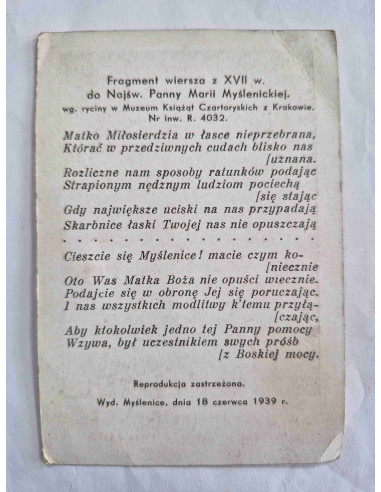 Fragment wiersza z XVII w.
do Najśw. Panny Marii Myślenickiej.
wg. ryciny w Muzeum Książąt Czartoryskich z Krakowie.
Nr inw. R. 4032.
Matko Miłosierdzia w łasce nieprzebrana,
Którać w przedziwnych cudach blisko nas
[uznana.
Rozliczne nam sposoby ratunków podając
Strapionym nędznym ludziom pociechą
[się stając
Gdy największe uciski na nas przypadają
Skarbnice łaski Twojej nas nie opuszczają
. . . . . . . . . . . . . . . . . .
Cieszcie się Myślenice! macie czym ko-
[niecznie
Oto Was Matka Boża nie opuści wiecznie.
Podajcie się w obronę Jej się poruczając.
I nas wszystkich modlitwy k'temu przyłą-
[czając,
Aby ktokolwiek jedno tej Panny pomocy
Wzywa, był uczestnikiem swych próśb
[z Boskiej mocy.
Reprodukcja zastrzeżona.
Wyd. Myślenice, dnia 18 czerwca 1939 r.